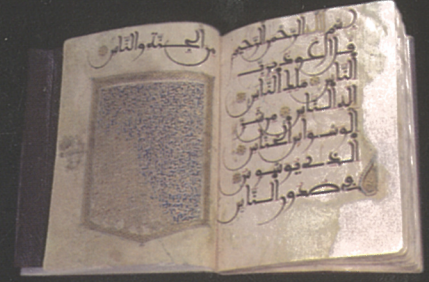 بسم الله الرحمن الرحيم
قل أعوذ برب
الناس ملك الناس
اله الناس من شر
الوسواس الخناس
الذي يوسوس
في صدور الناس
من الجنة والناس